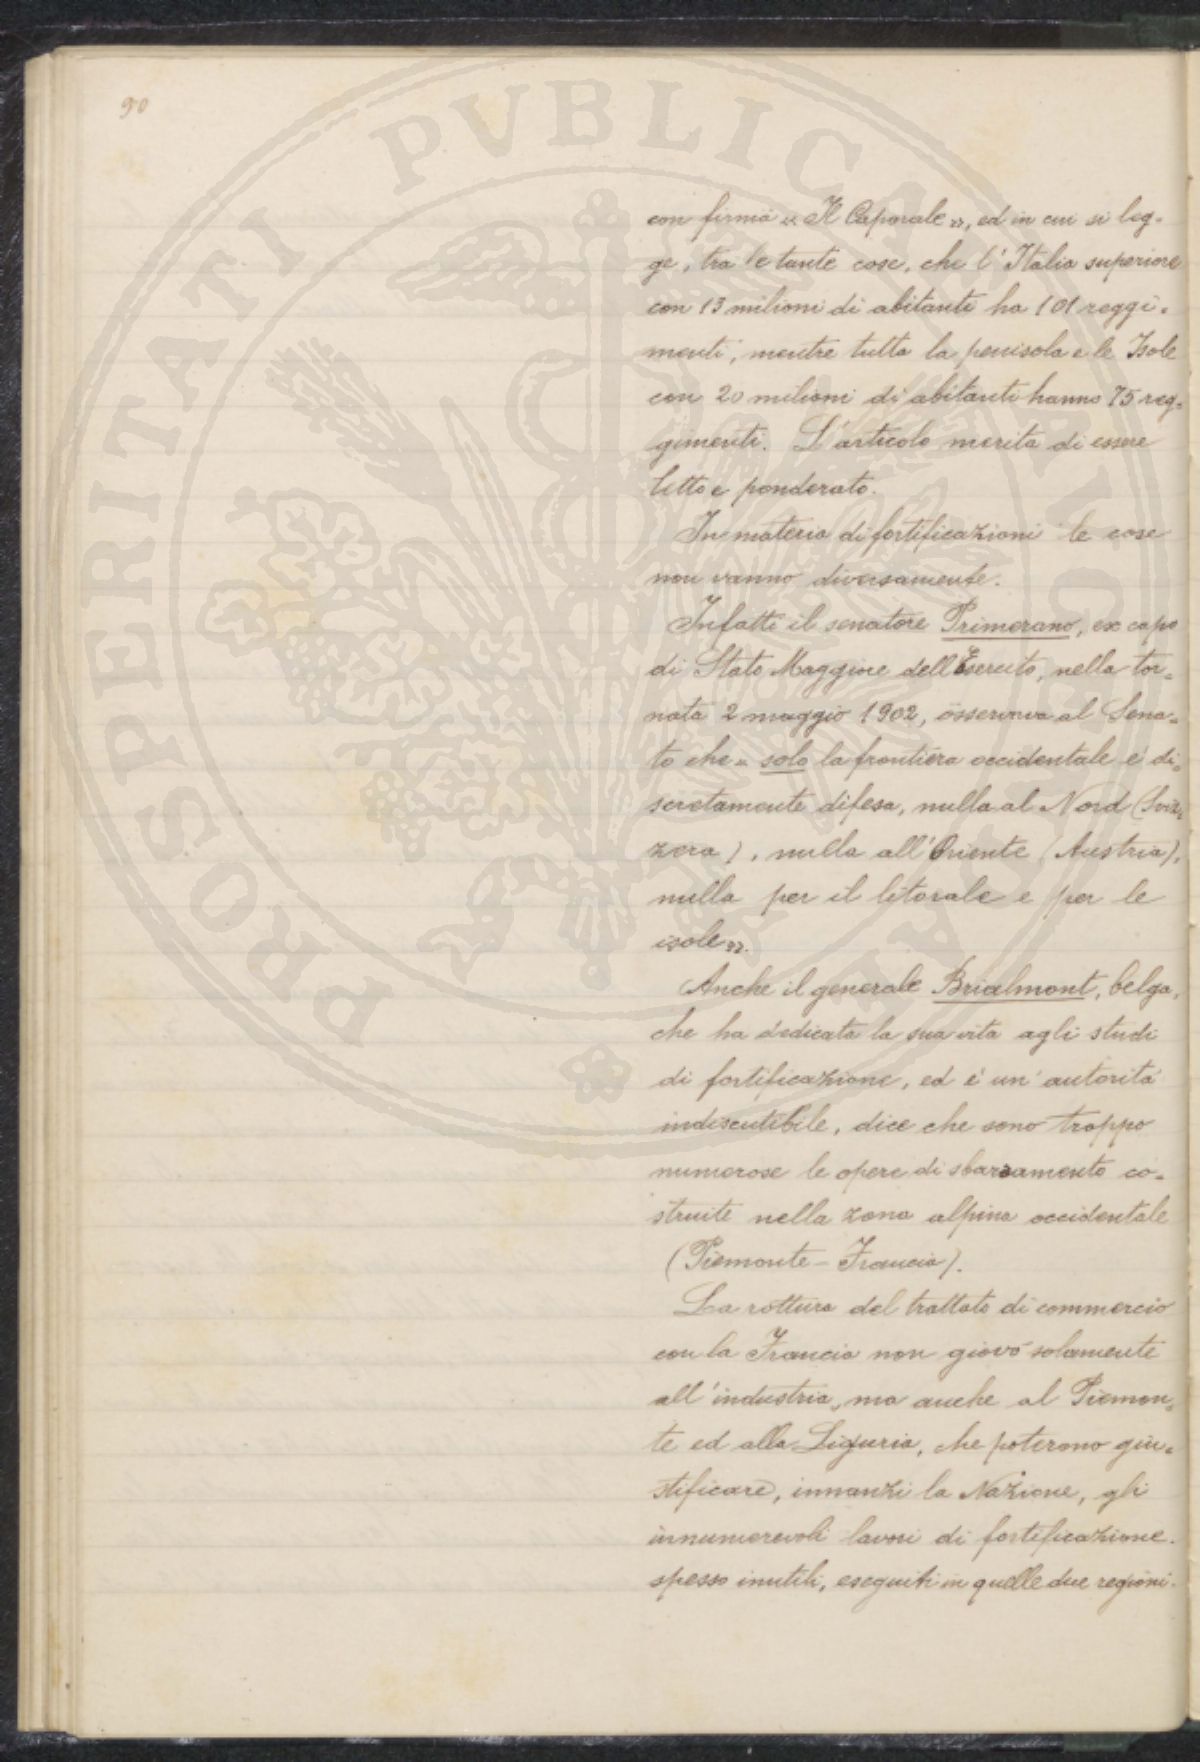 90
con firma « Il Caporale », ed in cui si leg-
ge, tra le tante cose, che l'Italia superiore
con 13 milioni di abitanti ha 101 reggi-
menti, mentre tutta la penisola e le Isole
con 20 milioni di abitanti hanno 75 reg-
gimenti. L'articolo merita di essere
letto e ponderato.
In materia di fortificazioni le cose
non vanno diversamente.
Infatti il senatore Primerano, ex capo
di Stato Maggiore dell'Esercito, nella tor-
nata 2 maggio 1902, osservava al Sena-
to che « solo la frontiera occidentale è di-
scretamente difesa, nulla al Nord (Sviz-
zera), nulla all'Oriente (Austria),
nulla per il litorale e per le
isole ».
Anche il generale Brialmont, belga,
che ha dedicata la sua vita agli studi
di fortificazione, ed è un'autorità
indiscutibile, dice che sono troppo
numerose le opere di sbarramento co-
struite nella zona alpina occidentale
(Piemonte - Francia).
La rottura del trattato di commercio
con la Francia non giovò solamente
all'industria, ma anche al Piemon-
te ed alla Liguria, che poterono giu-
stificare, innanzi la Nazione, gli
innumerevoli lavori di fortificazione
spesso inutili, eseguiti in quelle due regioni.
PROSPERITATI PVBLICAE